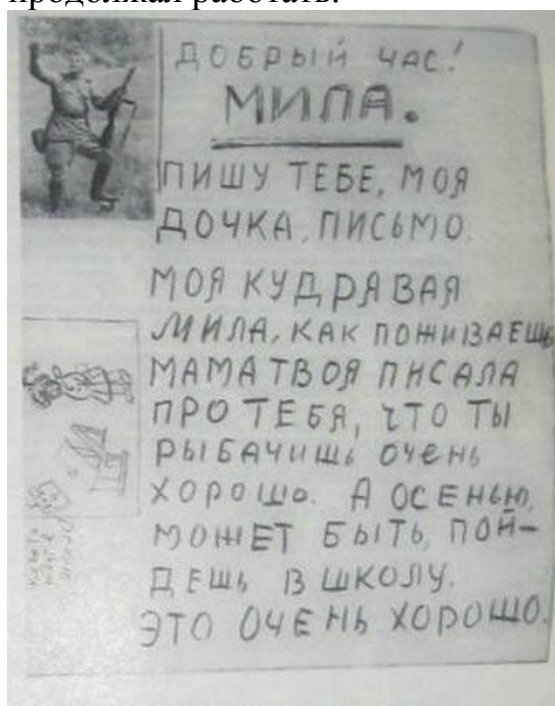 продолжал работать.
ДОБРЫЙ ЧАС!
МИЛА.
ПИШУ ТЕБЕ, МОЯ
ДОЧКА, ПИСЬМО.
МОЯ КУДРЯВАЯ
МИЛА, КАК ПОЖИВАЕШЬ
МАМА ТВОЯ ПИСАЛА
ПРО ТЕБЯ, ЧТО ТЫ
РЫБАЧИШЬ ОЧЕНЬ
ХОРОШО. А ОСЕНЬЮ,
МОЖЕТ БЫТЬ, ПОЙ-
ДЕШЬ В ШКОЛУ.
ЭТО ОЧЕНЬ ХОРОШО.